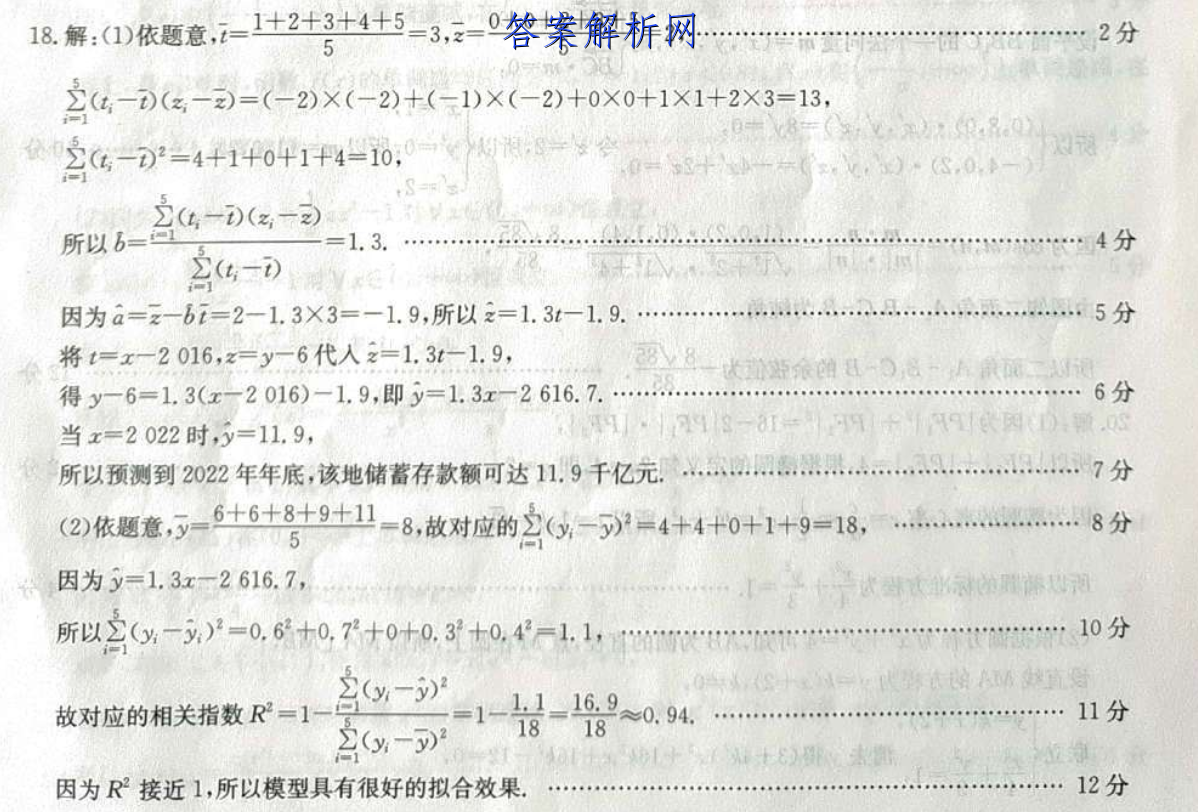 18.解:(1)依题意,t̄=(1+2+3+4+5)/5=3,z̄=
答案解析网
2分
∑(i=1→5)(tᵢ-t̄)(zᵢ-z̄)=(-2)×(-2)+(-1)×(-2)+0×0+1×1+2×3=13,
∑(i=1→5)(tᵢ-t̄)²=4+1+0+1+4=10,
所以b̂=∑(i=1→5)(tᵢ-t̄)(zᵢ-z̄)/∑(i=1→5)(tᵢ-t̄)=1.3. 4分
因为â=z̄-b̂t̄=2-1.3×3=-1.9,所以ẑ=1.3t-1.9. 5分
将t=x-2 016,z=y-6代入ẑ=1.3t-1.9,
得y-6=1.3(x-2 016)-1.9,即ŷ=1.3x-2 616.7. 6分
当x=2 022时,ŷ=11.9,
所以预测到2022年年底,该地储蓄存款额可达11.9千亿元. 7分
(2)依题意,ȳ=(6+6+8+9+11)/5=8,故对应的∑(i=1→5)(yᵢ-ȳ)²=4+4+0+1+9=18, 8分
因为ŷ=1.3x-2 616.7,
所以∑(i=1→5)(yᵢ-ŷᵢ)²=0.6²+0.7²+0+0.3²+0.4²=1.1, 10分
故对应的相关指数R²=1-∑(i=1→5)(yᵢ-ŷ)²/∑(i=1→5)(yᵢ-ȳ)²=1-1.1/18=16.9/18≈0.94. 11分
因为R²接近1,所以模型具有很好的拟合效果. 12分